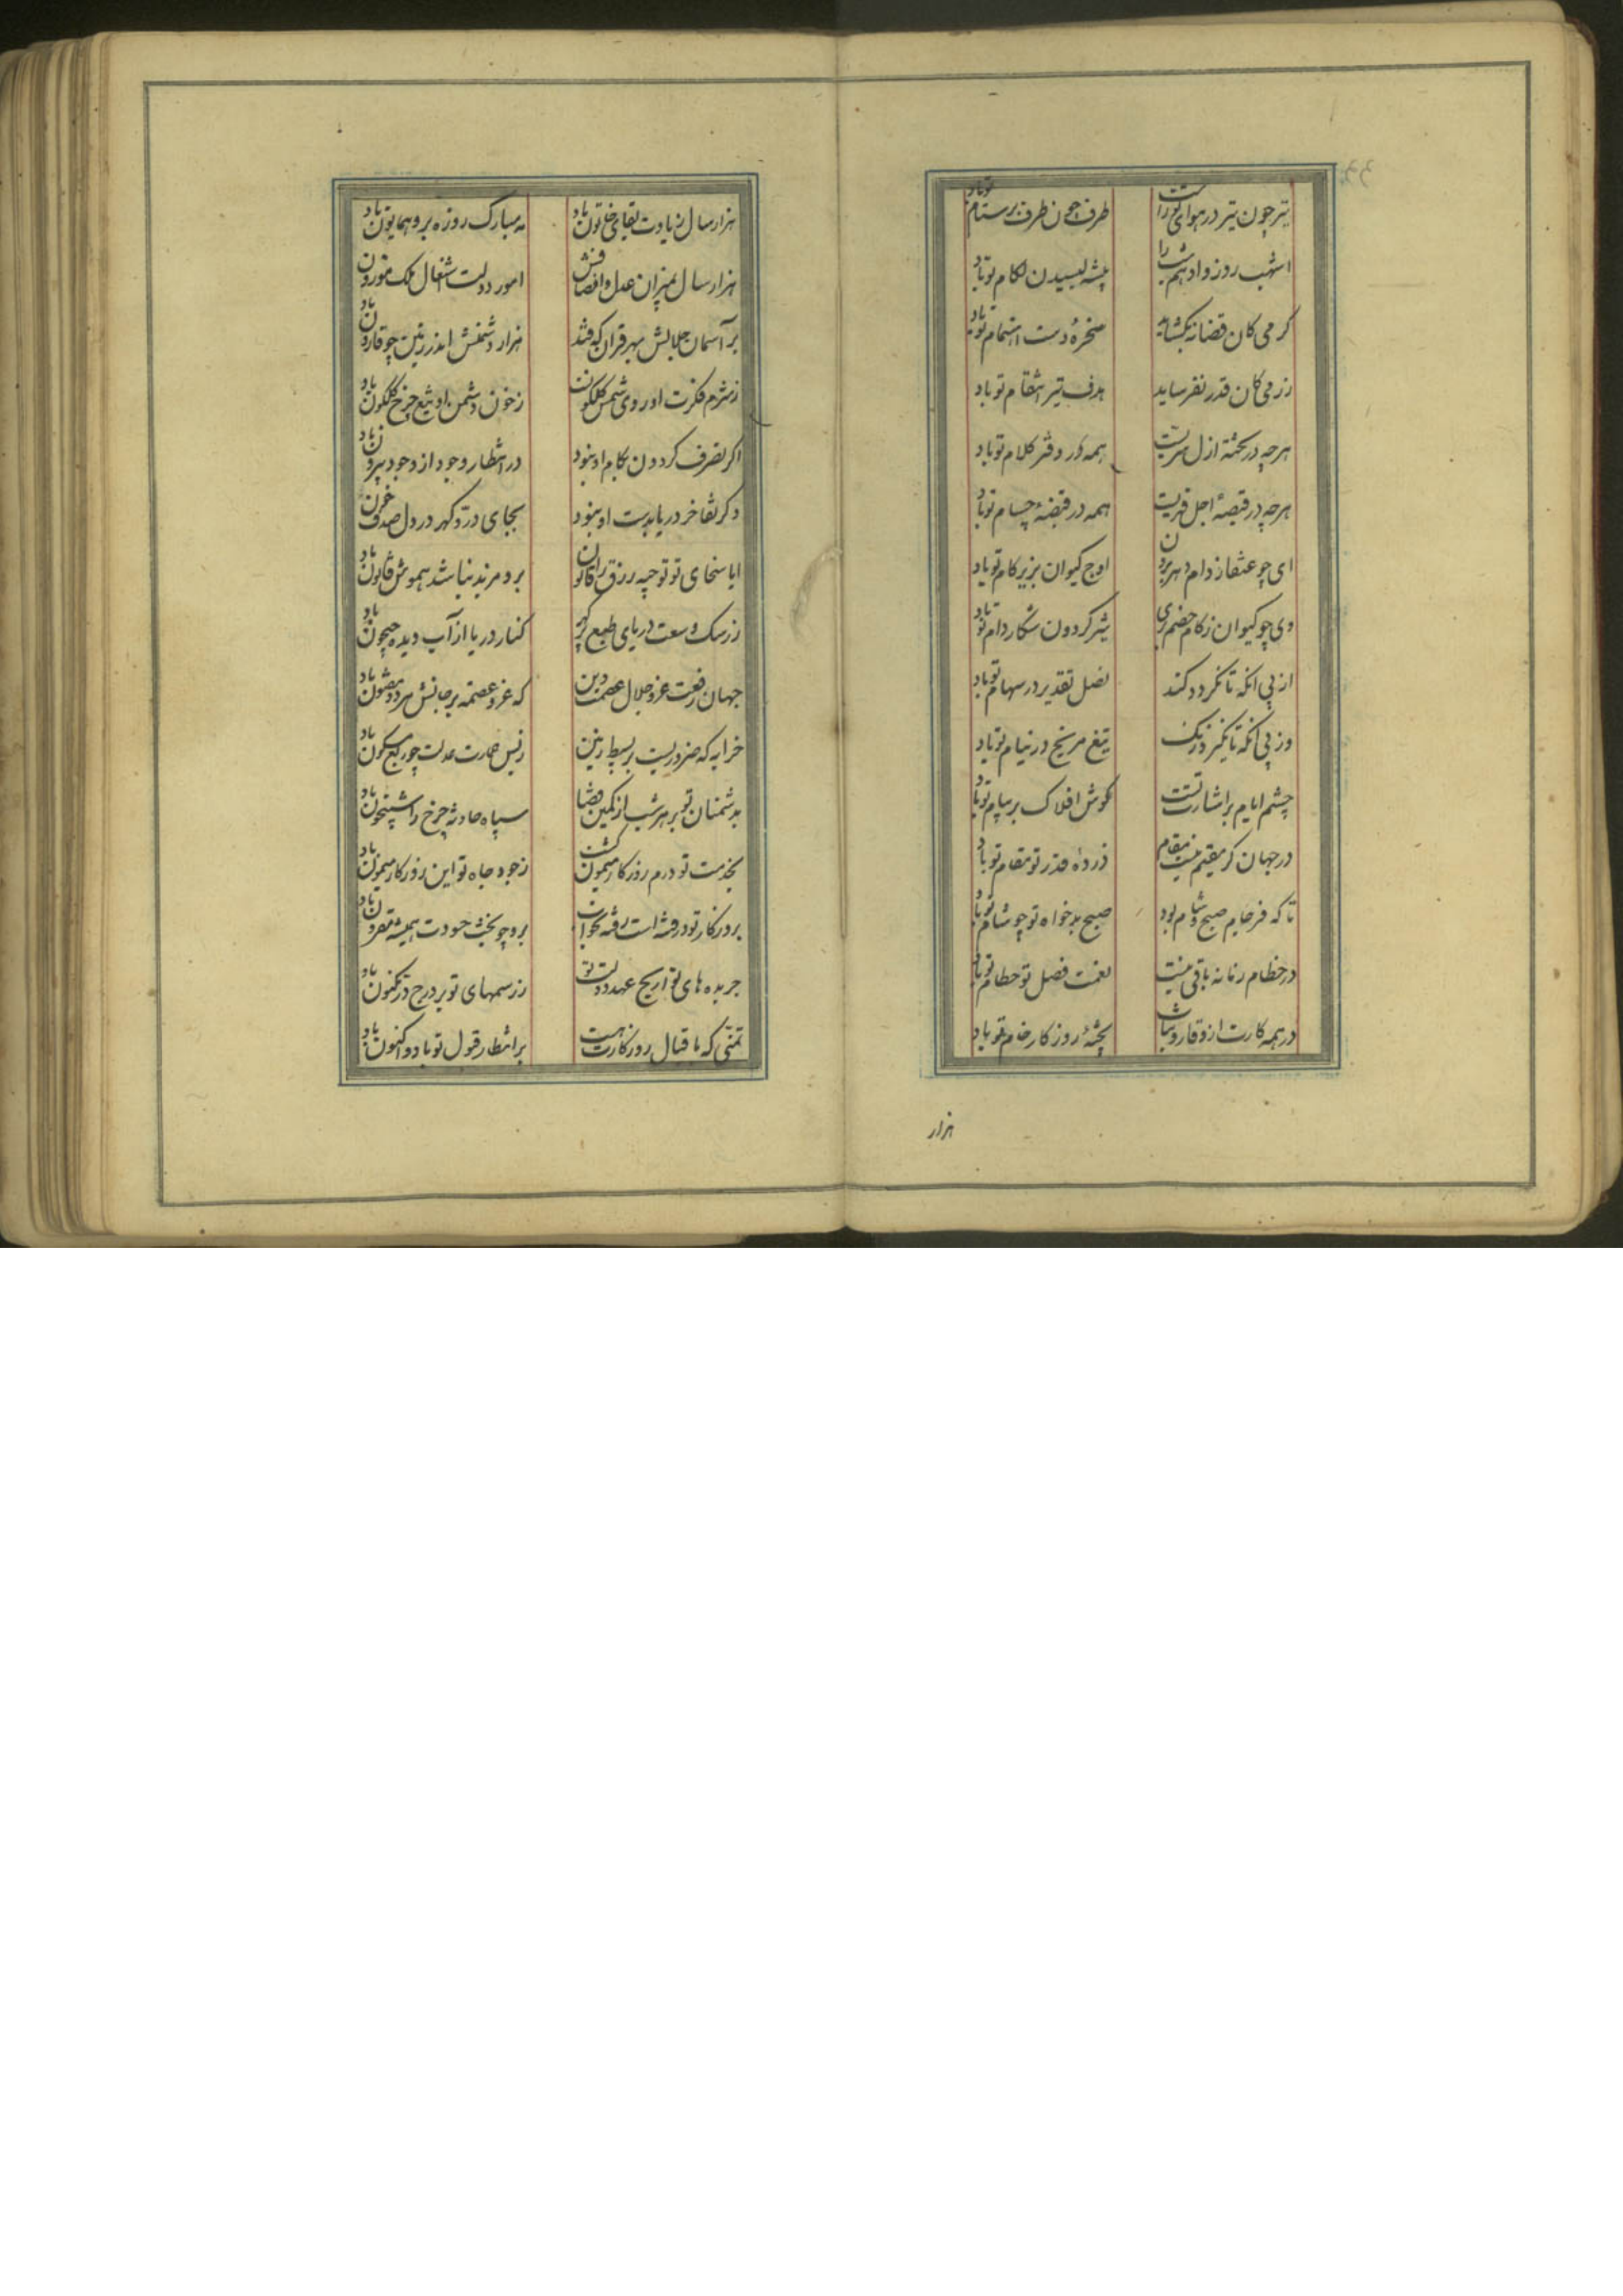 تیر چون تیر در هوای تو راست
طرف چون طرف بر ستام تو باد
اشهب روز و ادهم شب را
پیشه لیسیدن لگام تو باد
گرمی کان قضا نه بگشاید
سخره دست اهتمام تو باد
رزمی کان قدر نفرساید
هدف تیر انتقام تو باد
هرچه در تخته ازل سریست
همه در دفتر کلام تو باد
هرچه در قبضه اجل قهریست
همه در قبضه حسام تو باد
ای چو عنقا ز دام دهر برون
اوج کیوان بزیر گام تو باد
وی چو کیوان ز کام خصم بری
شیر گردون شکار دام تو باد
از پی انکه تا نگردد کند
نصل تقدیر در سهام تو باد
وز پی آنکه تا نگیرد زنگ
تیغ مریخ در نیام تو باد
چشم ایام بر اشارت تست
گوش افلاک بر پیام تو باد
در جهان گر مقیم نیست مقام
ذروه قدر تو مقام تو باد
تا که فرجام صبح و شام بود
صبح بدخواه تو چو شام تو باد
در حطام زمانه باقی نیست
نعمت فضل تو حطام تو باد
در همه کارت از وقار و ثبات
پخته روزگار خام تو باد
هزار
هزار سال زیادت بقای خاتون باد
مه مبارک روزه برو همایون باد
هزار سال بمیزان عدل و انصافش
امور دولت اشغال ملک موزون باد
بر آسمان جلالش بهر قران که فتد
هزار دشمنش اندر زمین چو قارون باد
ز شرم فکرت او روی شمس گلگونست
ز خون دشمن او تیغ چرخ گلگون باد
اگر تصرف گردون بکام او نبود
در انتظار وجود از وجود بیرون باد
وگر تفاخر دریا بدست او نبود
بجای در و گهر در دل صدف خون باد
ایا سخای تو توجیه رزق را قانون
برو مزید نباشد هموش قانون باد
ز رشک وسعت دریای طبع پر گهرت
کنار دریا از آب دیده جیحون باد
جهان رفعت عز و جلال عصمت دین
که عز و عصمت بر جانش هر دو مفتون باد
خرابه که ضروریست بر بسیط زمین
ز بس عمارت عدلت چو ربع مسکون باد
بدشمنان تو بر هر شب از کمین قضا
سپاه حادثه چرخ را شبیخون باد
بخدمت تو درم روزگار میمون گشت
ز جود جاه تو این روزگار میمون باد
بروزگار تو در فتنه است رفته بخواب
برو چو بخت حسودت همیشه مقرون باد
جریده های تواریخ عهد دولت تو
ز رسمهای تو پر درج در مکنون باد
تمنی که باقبال روزگارت هست
بر انتظار قبول تو باد و اکنون باد